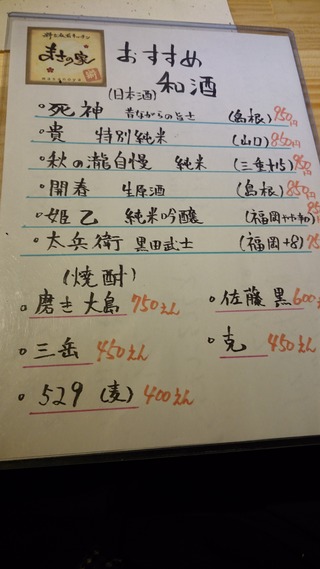 まさの家
おすすめ
和酒
(日本酒)
・死神 昔ながらの旨士 (島根) 950円
・貴 特別純米 (山口) 850円
・秋の瀧自慢 純米 (三重+15) 950円
・開春 生原酒 (島根) 850円
・姫乙 純米吟醸 (福岡
・太兵衛 黒田武士 (福岡+8)
(焼酎)
・磨き大島 750えん ・佐藤 黒 600
・三岳 450えん ・克 450えん
・529 (麦) 400えん